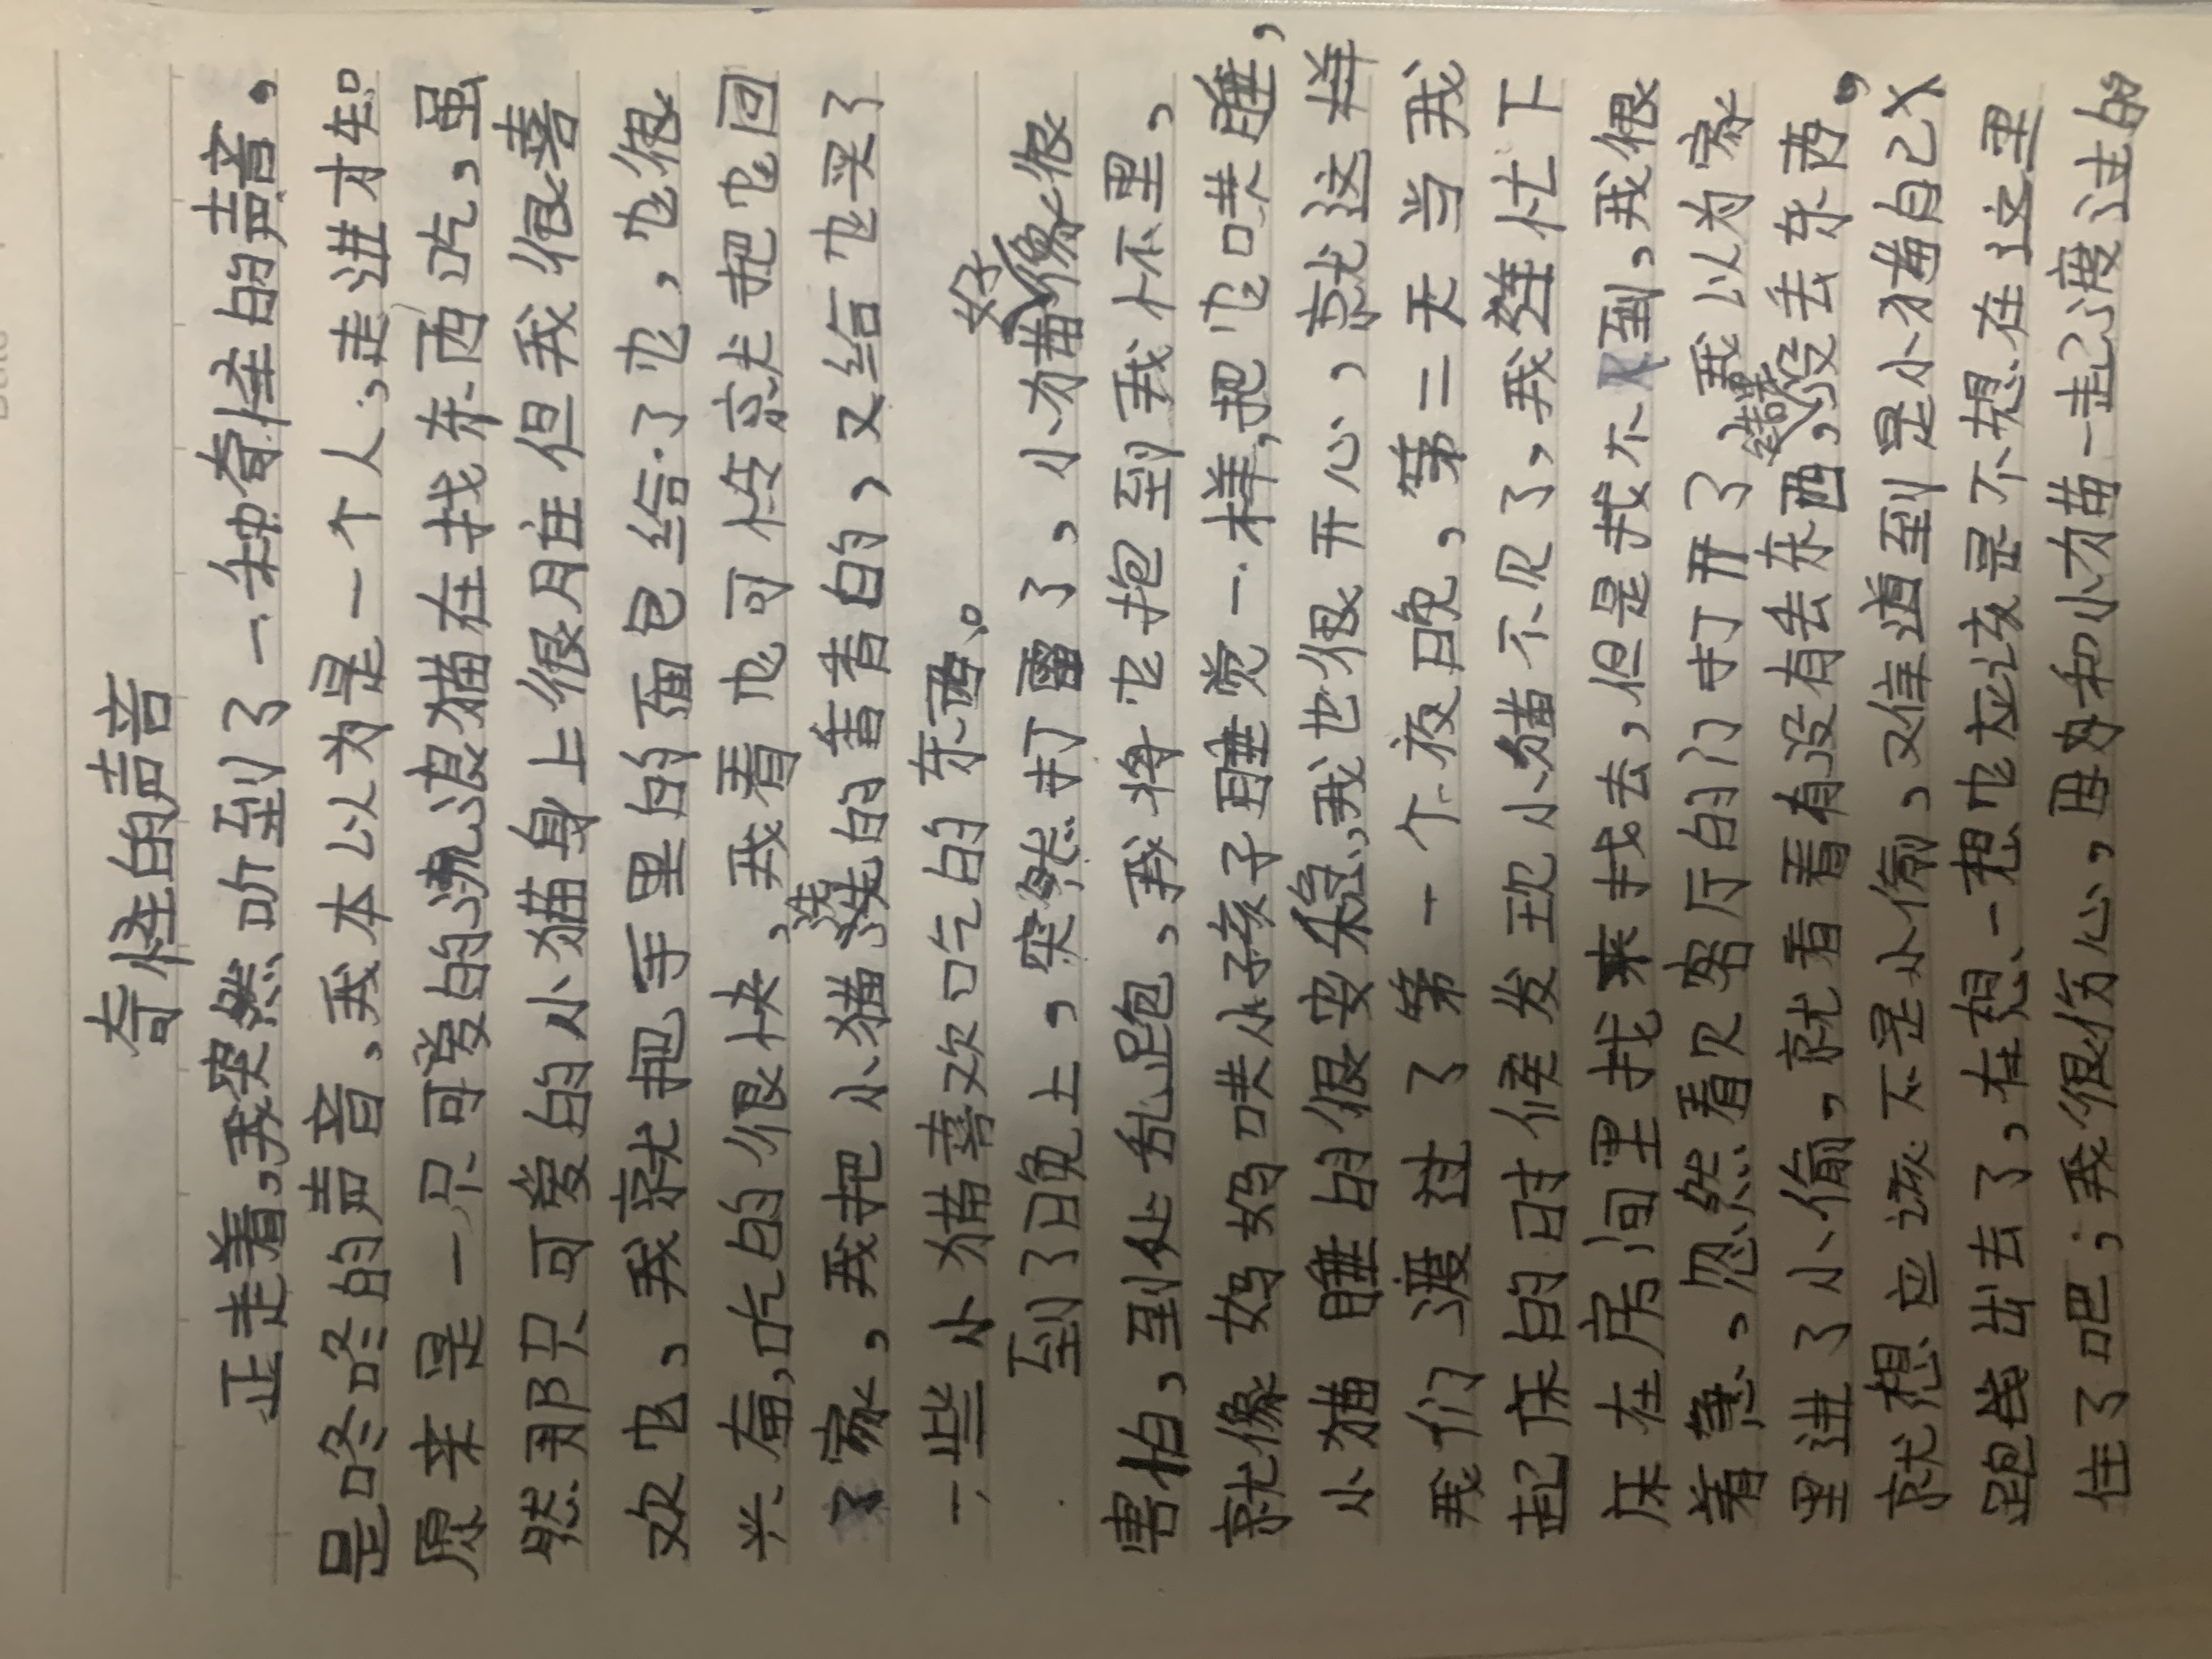 奇怪的声音
正走着,我突然听到了一种奇怪的声音,
是咚咚的声音,我本以为是一个人,走进才知。
原来是一只可爱的流浪猫在找东西吃,虽
然那只可爱的小猫身上很脏但我很喜
欢它,我就把手里的面包给了它,它很
兴奋,吃的很快,我看它可怜就把它回
了家,我把小猫洗的香香的,又给它买了
一些小猫喜欢吃的东西。
到了晚上,突然打雷了,小猫好像很
害怕,到处乱跑,我将它抱到我怀里,
就像妈妈哄小孩子睡觉一样,把它哄睡,
小猫睡的很安稳,我也很开心,就这样
我们渡过了第一个夜晚,第二天当我
起床的时候发现小猫不见了,我连忙下
床在房间里找来找去,但是找不到,我很
着急,忽然看见客厅的门打开了,我以为家
里进了小偷,就看看有没有丢东西,没丢东西,
就想应该不是小偷,又值道到是小猫自己
跑出去了,在想一想它应该是不想在这里
住了吧;我很伤心,因为和小猫一起渡过的